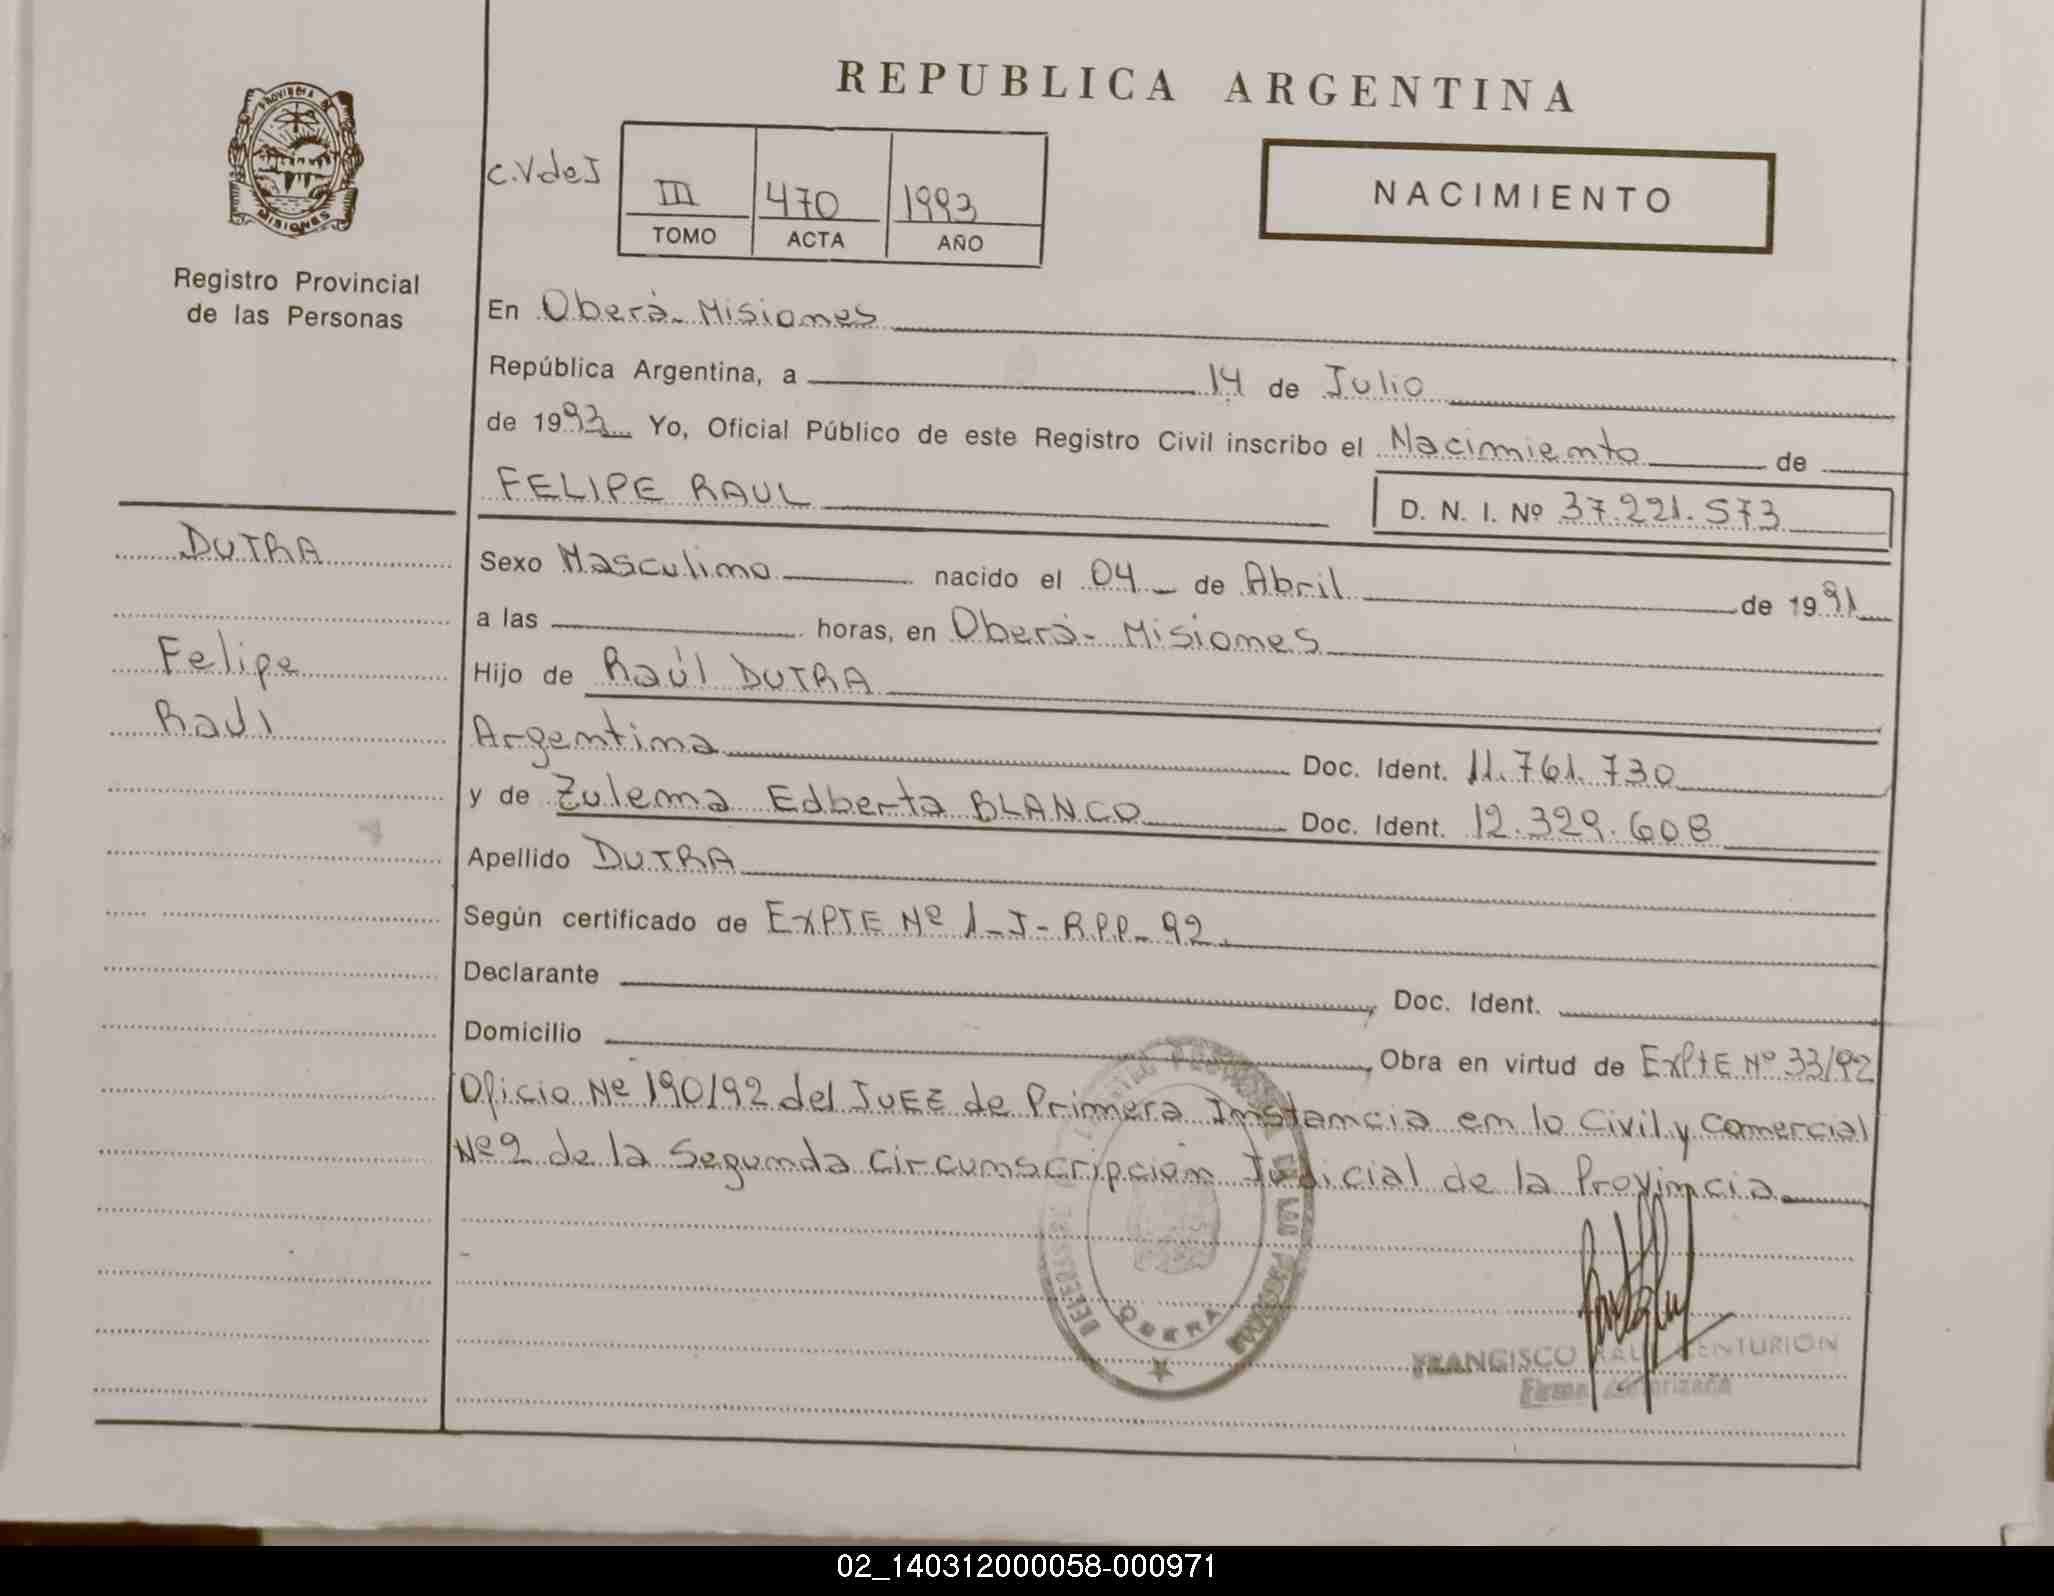 REPUBLICA ARGENTINA
PROVINCIA DE
MISIONES
Registro Provincial
de las Personas
C.V de J
III 470 1993
TOMO ACTA AÑO
NACIMIENTO
En Oberá - Misiones
República Argentina, a 14 de Julio
de 1993 Yo, Oficial Público de este Registro Civil inscribo el Nacimiento de
FELIPE RAUL
D. N. I. Nº 37.221.573
DUTRA
Felipe
Raúl
Sexo Masculino nacido el 04 de Abril de 1991
a las horas, en Oberá - Misiones
Hijo de Raúl DUTRA
Argentina Doc. Ident. 11.761.730
y de Zulema Edberta BLANCO Doc. Ident. 12.329.608
Apellido DUTRA
Según certificado de EXPTE Nº 1-J-R.P.P-92.
Declarante , Doc. Ident.
Domicilio , Obra en virtud de EXPTE Nº 33/92
Oficio Nº 190/92 del JUEZ de Primera Instancia en lo Civil y Comercial
Nº 2 de la Segunda Circunscripción Judicial de la Provincia
OBERA
FRANCISCO RAUL CENTURION
Firma Autorizada
02_140312000058-000971